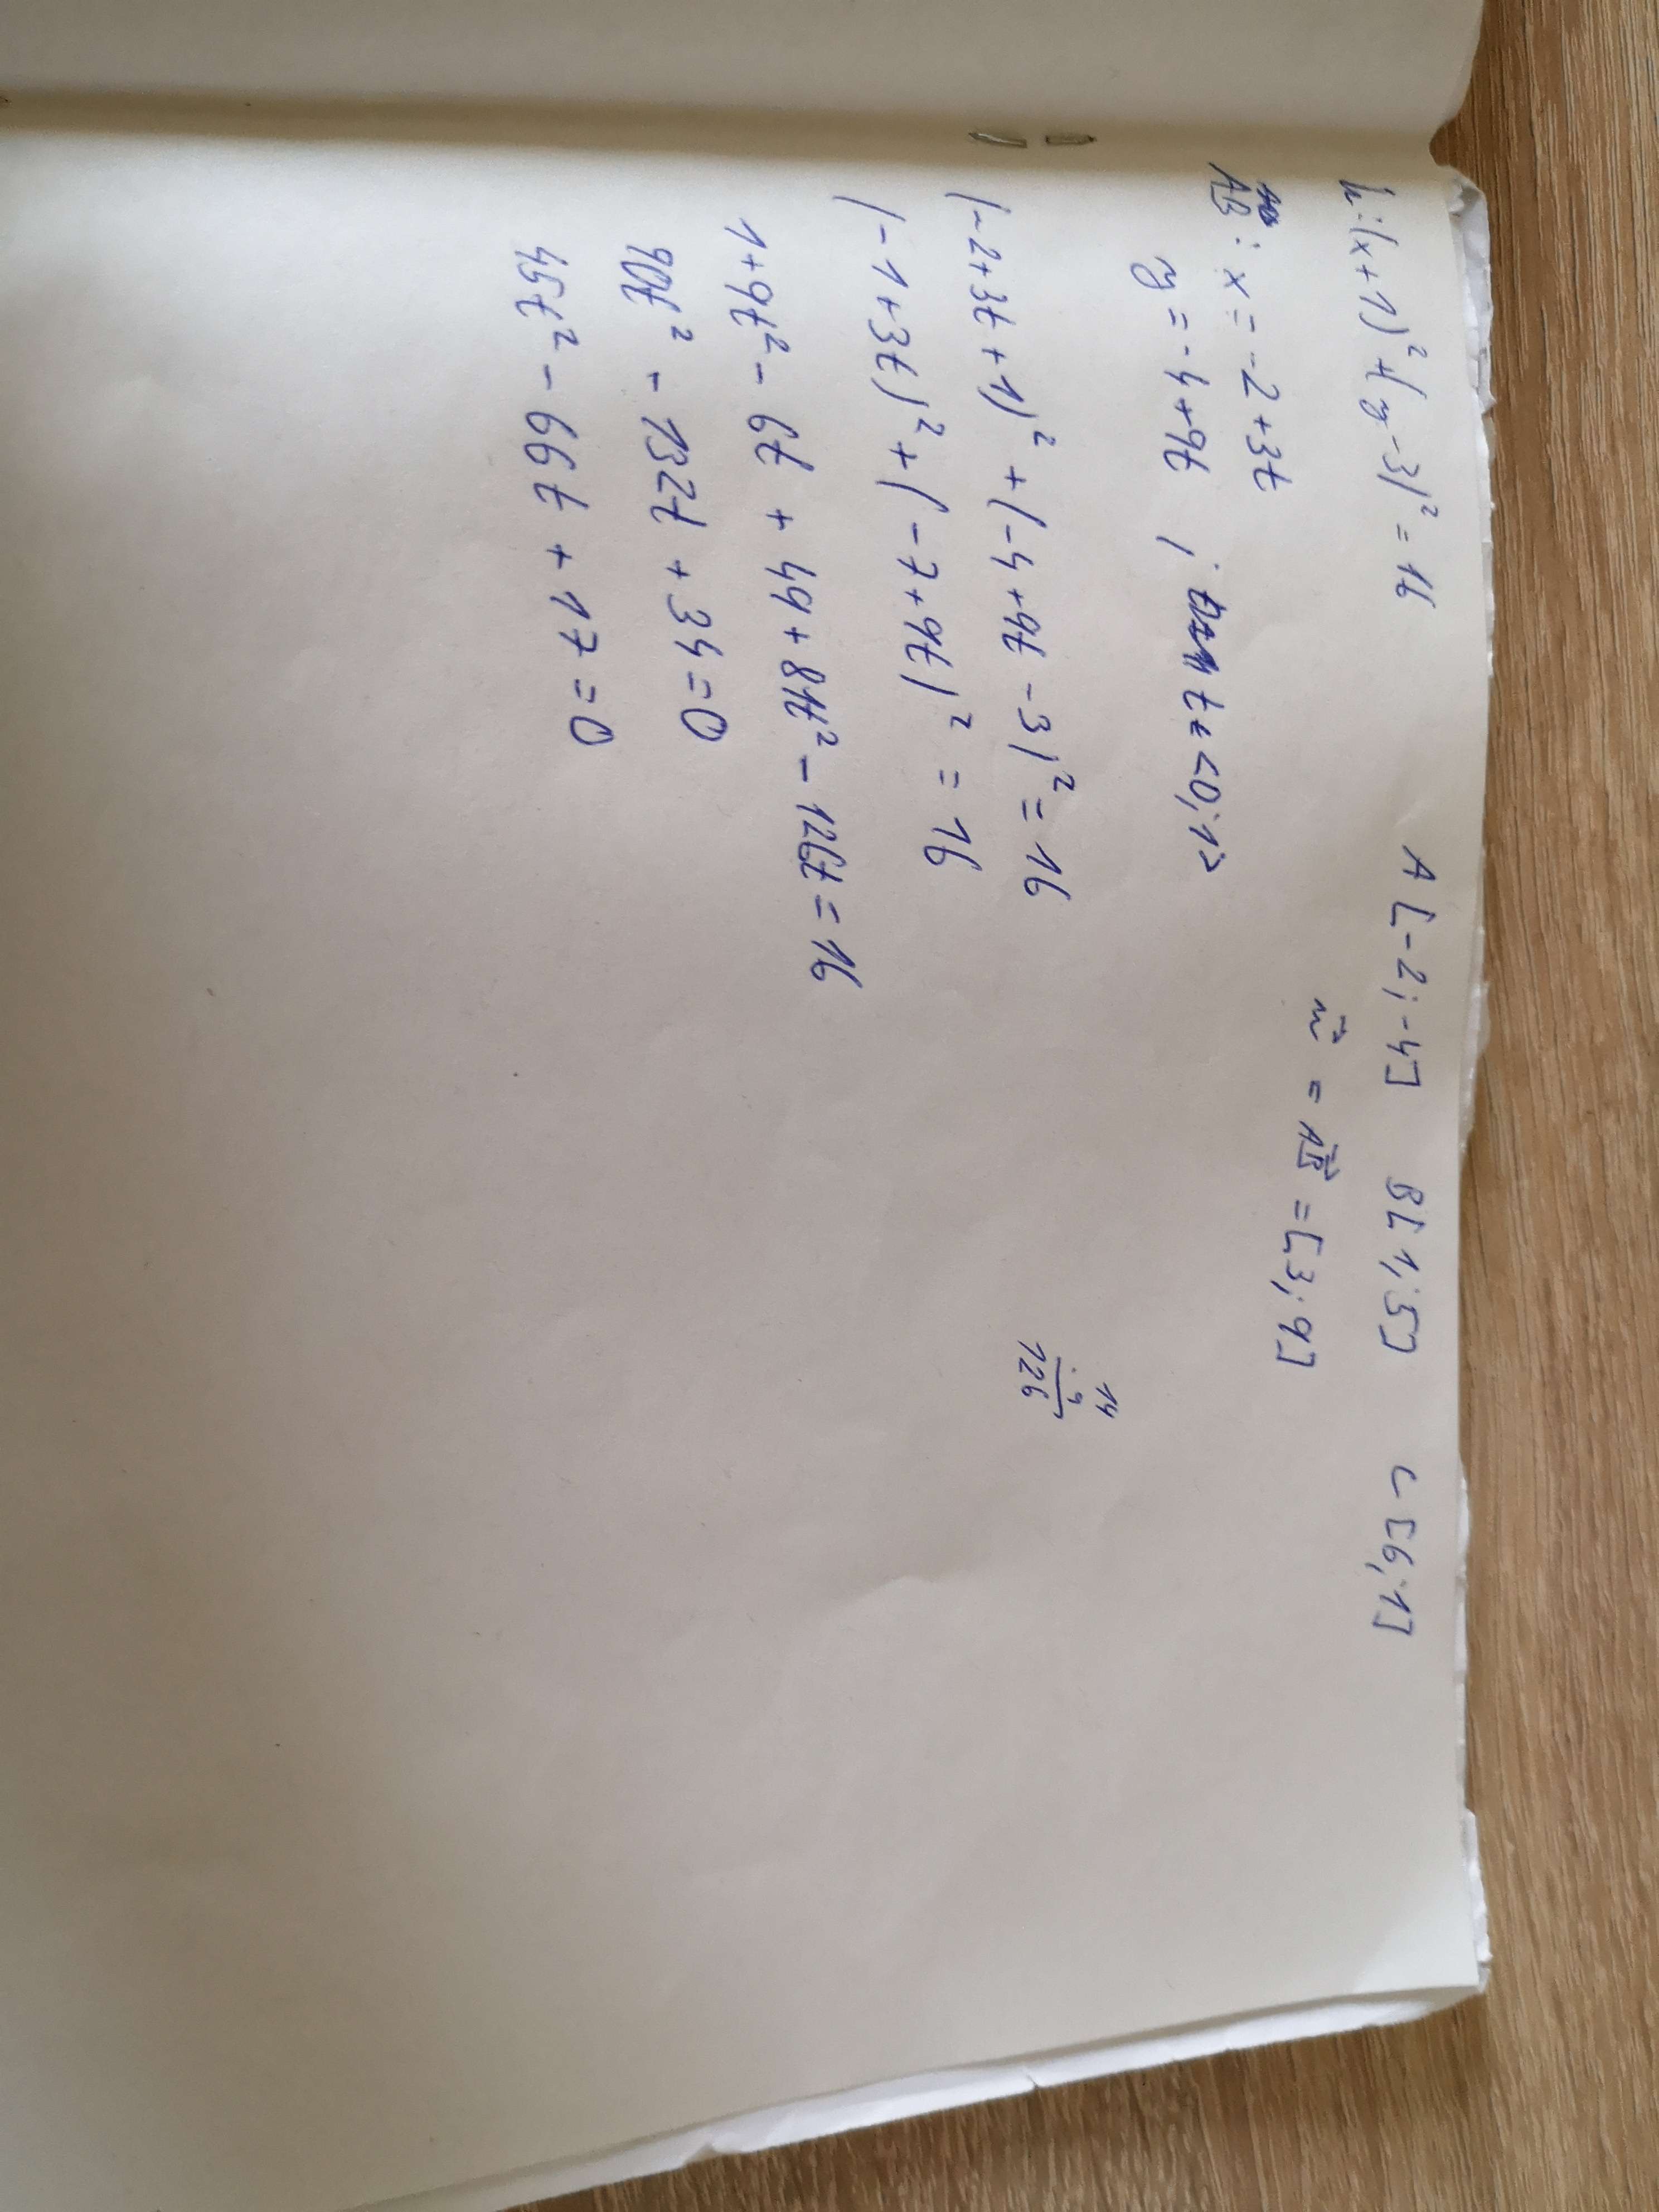 k: (x+1)² + (y-3)² = 16 A[-2;-4] B[1;5] C[6;1]
AB: x = -2+3t u⃗ = AB⃗ = [3;9]
y = -4+9t ; t∈<0;1>
(-2+3t+1)² + (-4+9t-3)² = 16
14
·9
126
(-1+3t)² + (-7+9t)² = 16
1+9t² - 6t + 49+81t² - 126t = 16
90t² - 132t + 34 = 0
45t² - 66t + 17 = 0